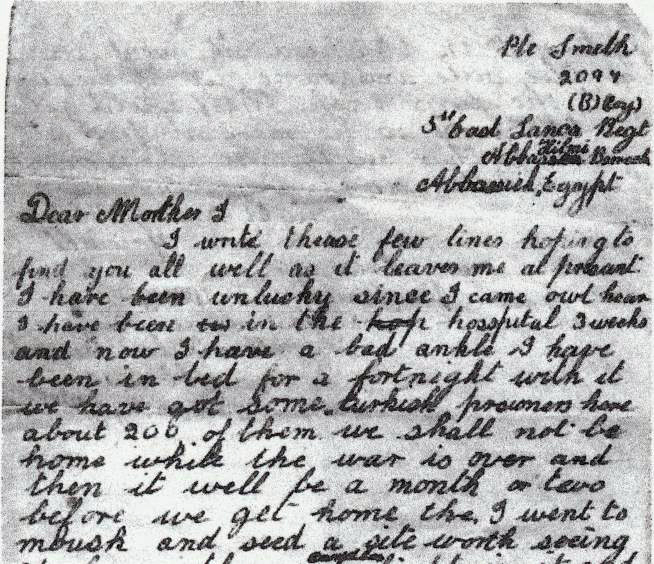 Pte Smith
2094
(B) Coy)
5th East Lancs Regt
Abbassia Hilmi Barracks
Abbassieh, Egypt
Dear Morther I
I write thease few lines hoping to
find you all well as it leaves me at presant
I have been unlucky since I came owt hear
I have been in the hop hosspital 3 weeks
and now I have a bad ankle I have
been in bed for a fortnight with it
we have got some turkish prisoners here
about 200 of them we shall not be
home while the war is over and
then it well be a month or two
before we get home the, I went to
mousk and seed a site worth seeing